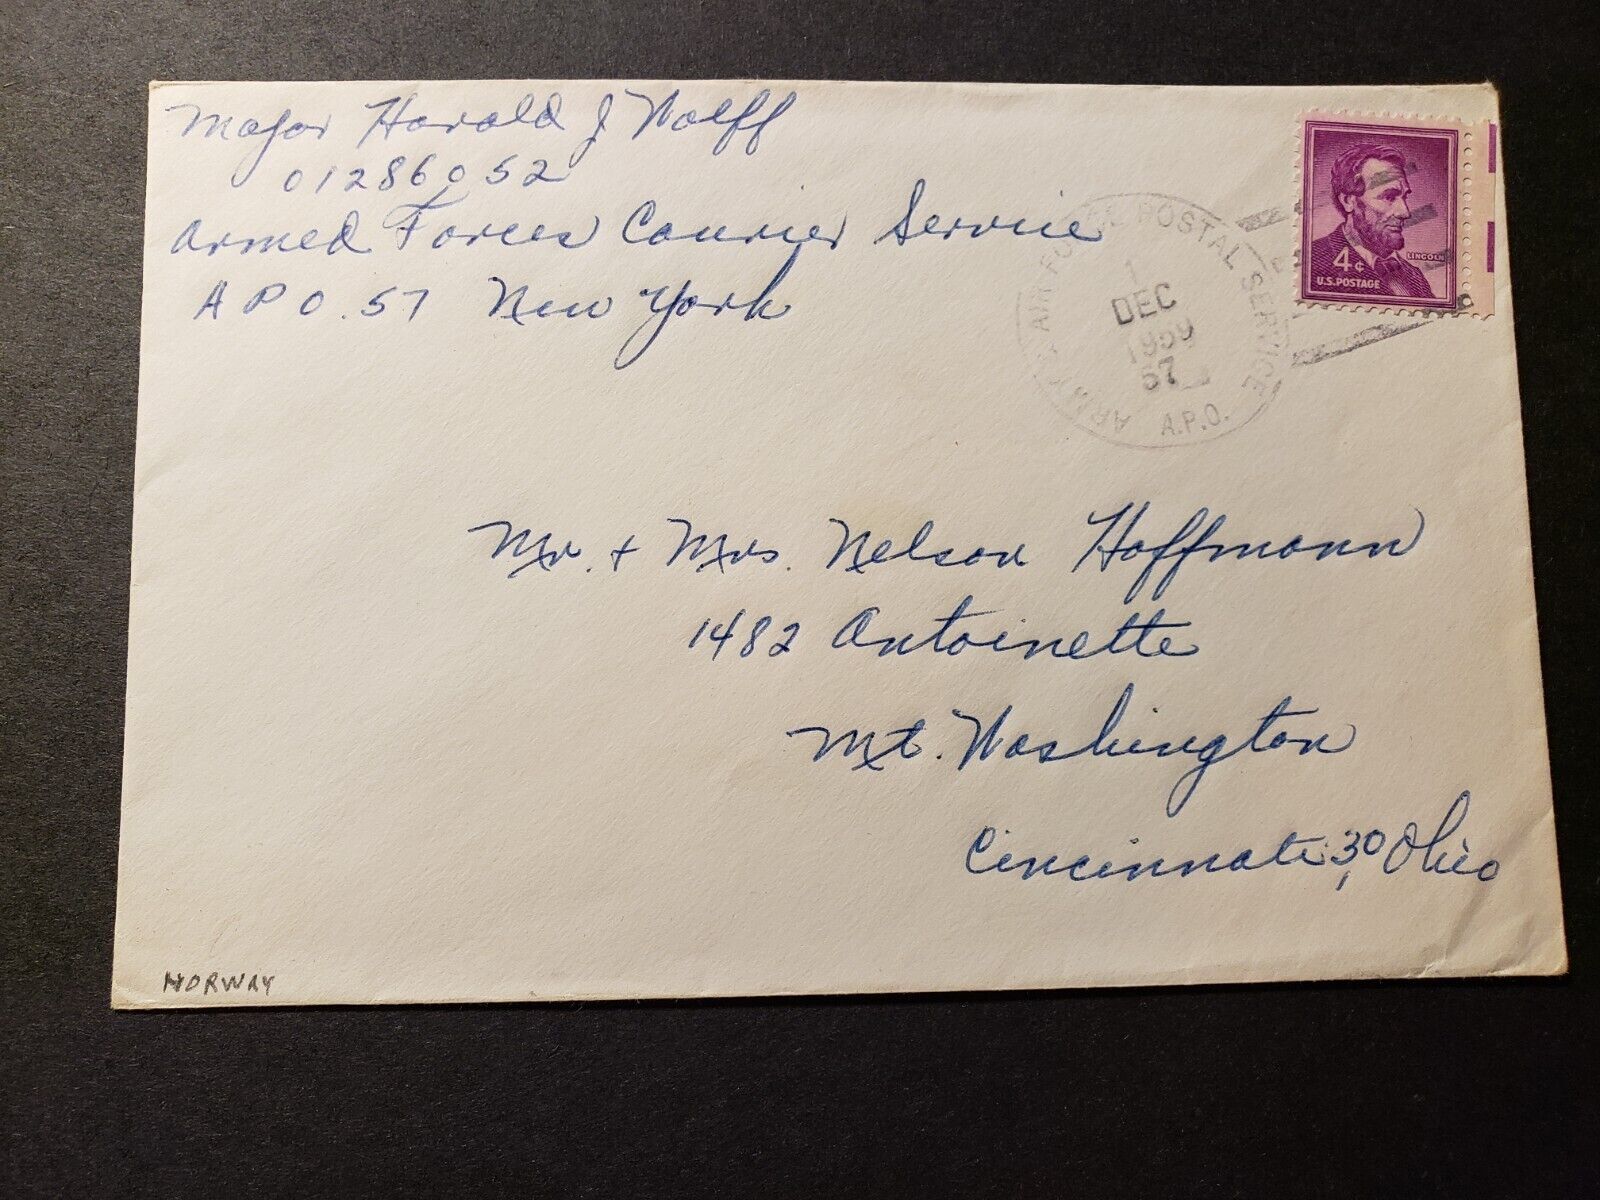 Major Harold J Wolff
01286052
Armed Forces Courier Service
A P O . 57 New York
LINCOLN
4¢
U.S. POSTAGE
ARMY & AIR FORCE POSTAL SERVICE
1
DEC
1959
57
A.P.O.
Mr. + Mrs. Nelson Hoffmann
1482 Antoinette
Mt. Washington
Cincinnati 30, Ohio
NORWAY